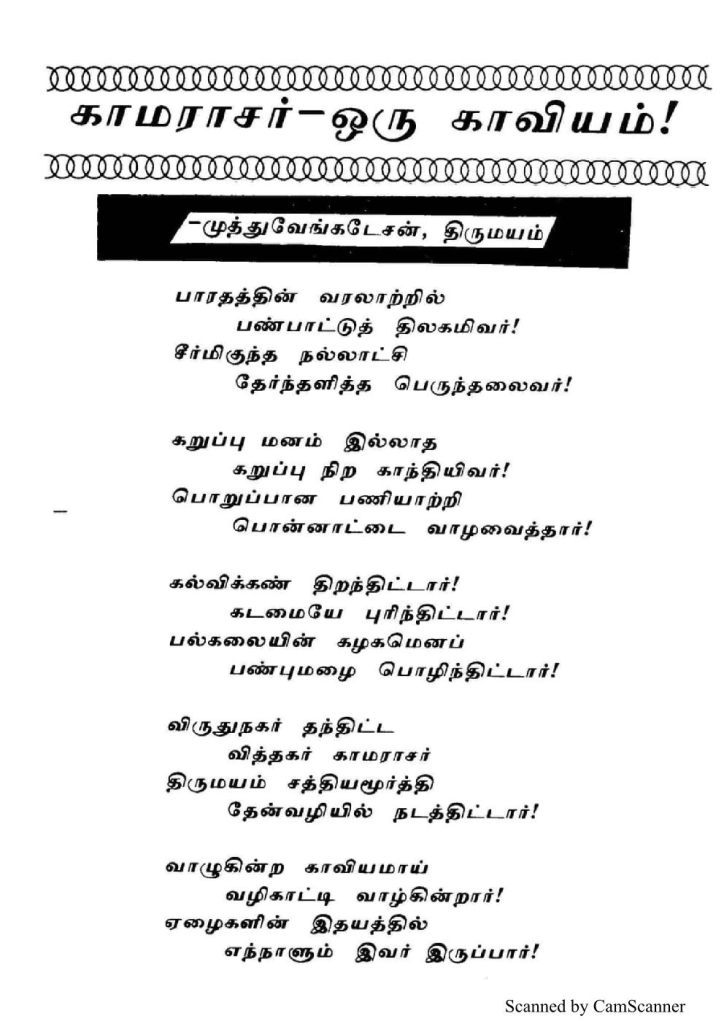 காமராசர்-ஒரு காவியம்!
-முத்துவேங்கடேசன், திருமயம்
பாரதத்தின் வரலாற்றில்
பண்பாட்டுத் திலகமிவர்!
சீர்மிகுந்த நல்லாட்சி
தேர்ந்தளித்த பெருந்தலைவர்!
கறுப்பு மனம் இல்லாத
கறுப்பு நிற காந்தியிவர்!
பொறுப்பான பணியாற்றி
பொன்னாட்டை வாழவைத்தார்!
கல்விக்கண் திறந்திட்டார்!
கடமையே புரிந்திட்டார்!
பல்கலையின் கழகமெனப்
பண்புமழை பொழிந்திட்டார்!
விருதுநகர் தந்திட்ட
வித்தகர் காமராசர்
திருமயம் சத்தியமூர்த்தி
தேன்வழியில் நடத்திட்டார்!
வாழுகின்ற காவியமாய்
வழிகாட்டி வாழ்கின்றார்!
ஏழைகளின் இதயத்தில்
எந்நாளும் இவர் இருப்பார்!
Scanned by CamScanner